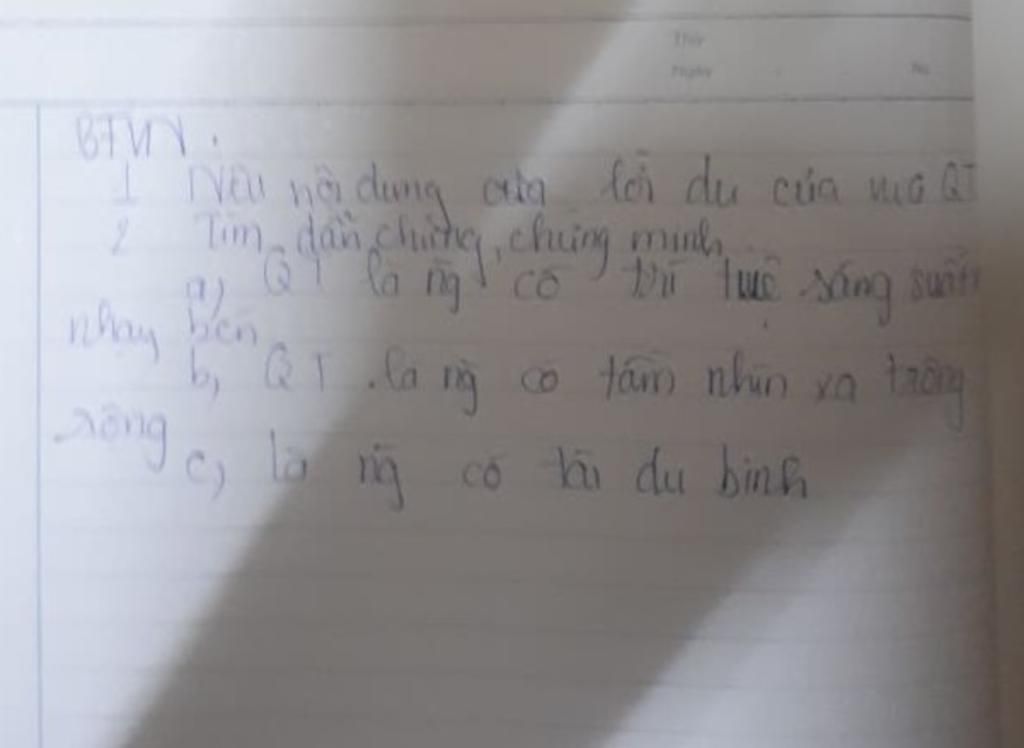 Thứ
Ngày No.
BTVN.
1 Nêu nội dung của lời dụ của vua QT
2 Tìm dẫn chứng, chứng minh
a) QT là ng có trí tuệ sáng suốt
nhạy bén
b, QT là ng có tầm nhìn xa trông
rông
c) là ng có tài dụ binh